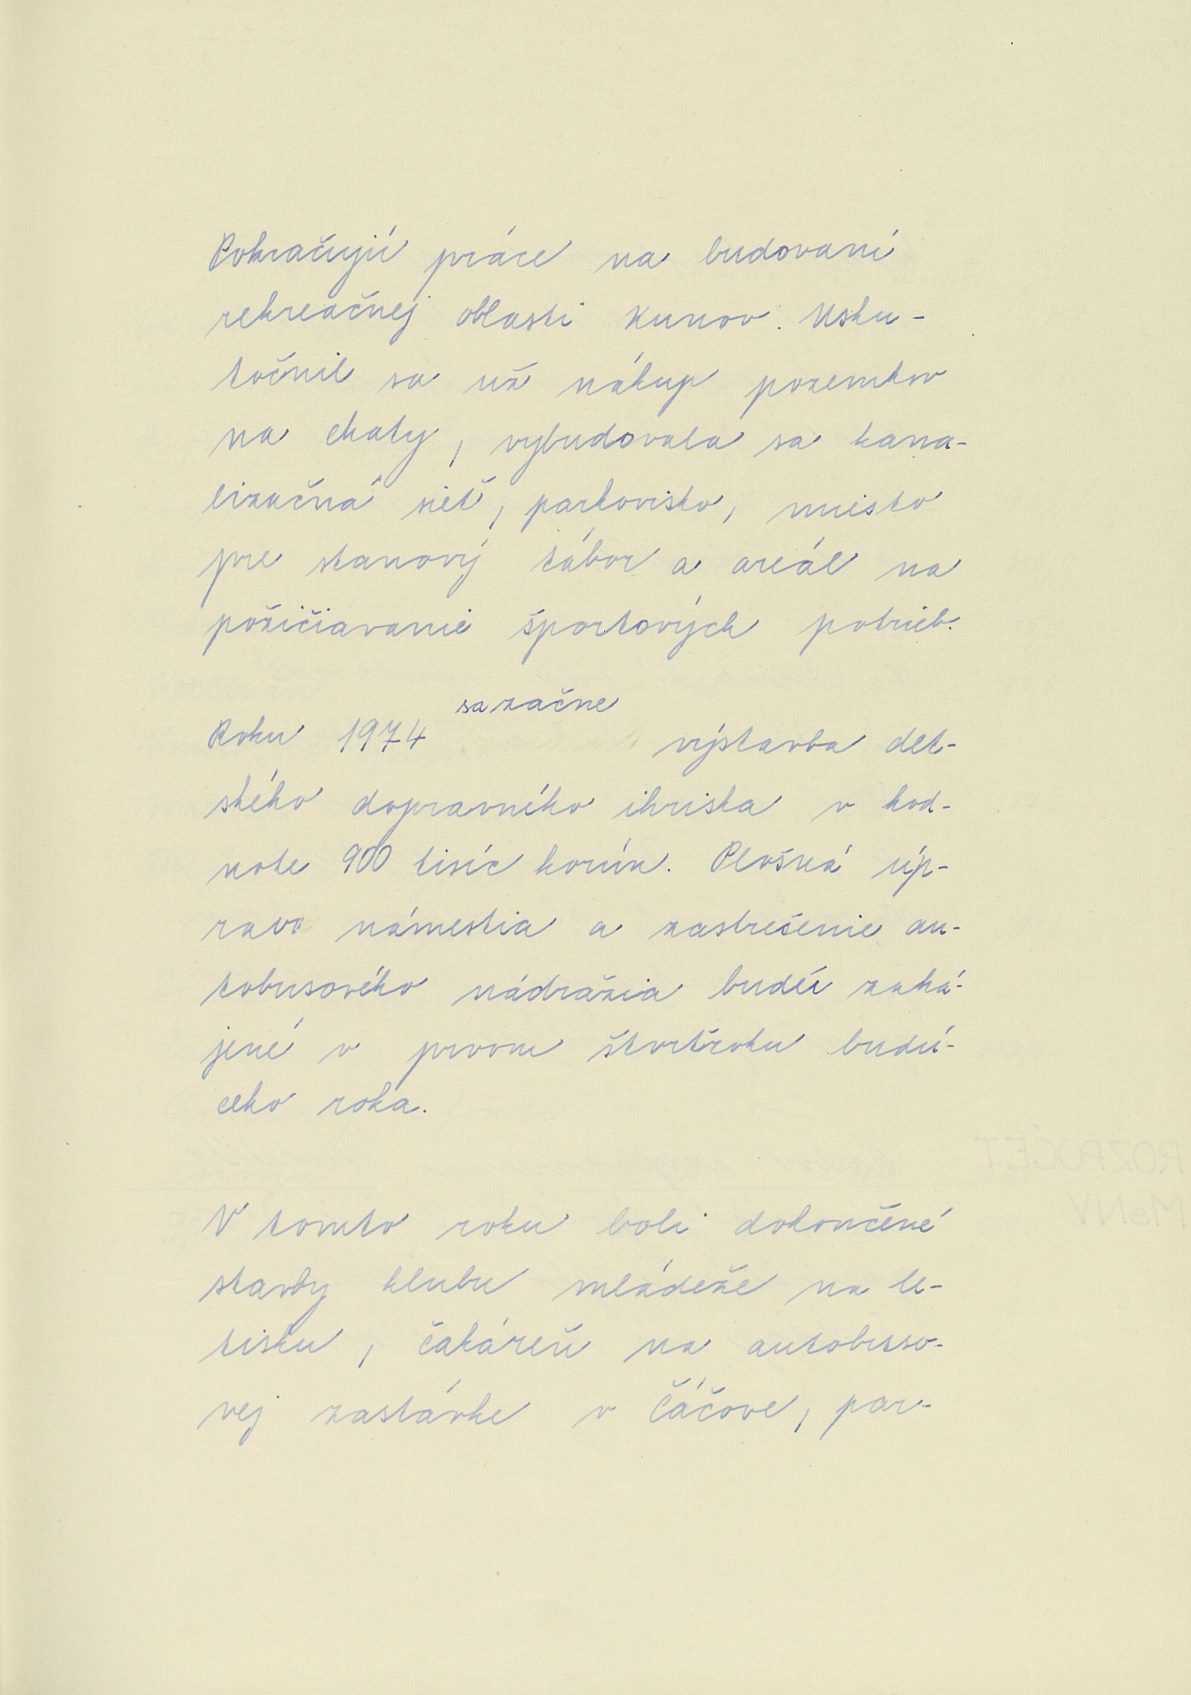 Pokračujú práce na budovaní
rekreačnej oblasti Kunov. Usku-
točnil sa už nákup pozemkov
na chaty, vybudovala sa kana-
lizačná sieť, parkovisko, miesto
pre stanový tábor a areál na
požičiavanie športových potrieb.
sa začne
Roku 1974 výstavba det-
ského dopravného ihriska v hod-
note 900 tisíc korún. Plošná úp-
rava námestia a zastrešenie au-
tobusového nádražia budú zahá-
jené v prvom štvrťroku budú-
ceho roka.
V tomto roku boli dokončené
stavby klubu mládeže na le-
tisku, čakáreň na autobuso-
vej zastávke v Čáčove, par-
ROZPOČET
MsNV